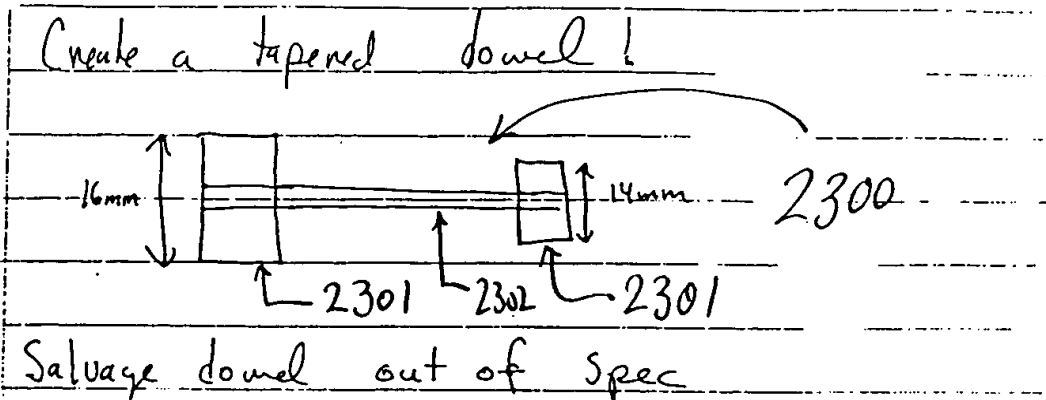 Create a tapered dowel!
16mm 14mm 2300
2301 2302 2301
Salvage dowel out of spec